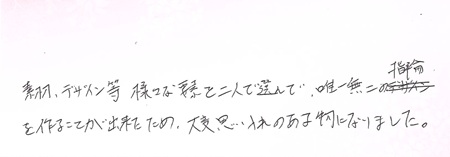 素材、デザイン等 様々な要素を二人で選んで、唯一無二の指輪
を作ることが出来たため、大変思い入れのある物になりました。